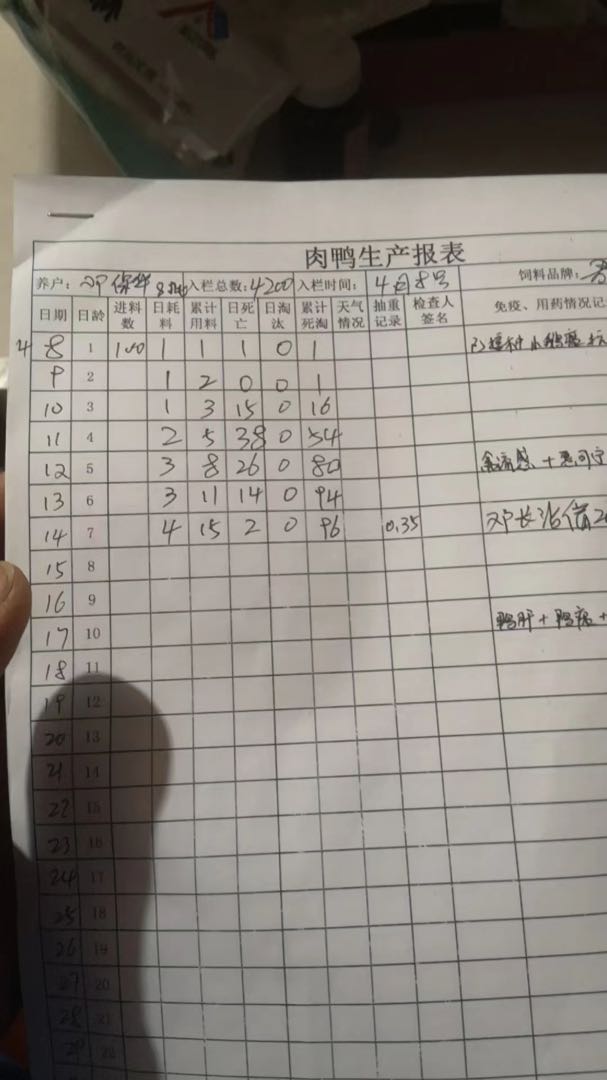 肉鸭生产报表
养户: 邓保华 入栏总数: 4200 入栏时间: 4月8号 饲料品牌:
日期 日龄 进料数 日耗料 累计用料 日死亡 日淘汰 累计死淘 天气情况 抽重记录 检查人签名 免疫、用药情况记
4 8 1 100 1 1 1 0
9 2 1 2 0 0 1
10 3 1 3 15 0 16
11 4 2 5 38 0 54
12 5 3 8 26 0 80 禽流感+
13 6 3 11 14 0 94
14 7 4 15 2 0 96 0.35 邓长治借
15 8
16 9
17 10 鸭肝+鸭瘟+
18 11
19 12
20 13
21 14
22 15
23 16
24 17
25 18
26 19
27 20
28 21
29 22